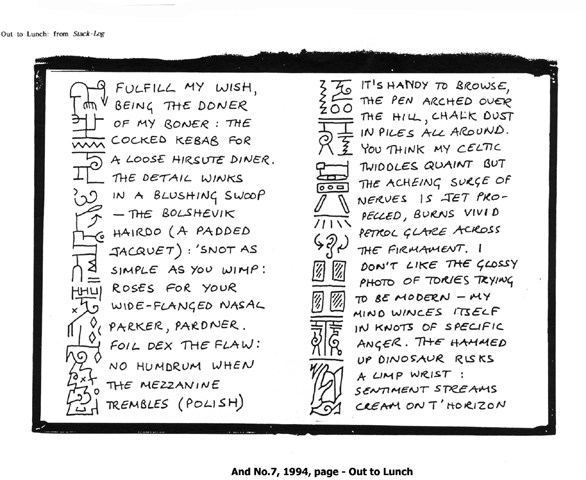 Out to Lunch: from Stack-Log
FULFILL MY WISH,
BEING THE DONER
OF MY BONER : THE
COCKED KEBAB FOR
A LOOSE HIRSUTE DINER.
THE DETAIL WINKS
IN A BLUSHING SWOOP
— THE BOLSHEVIK
HAIRDO (A PADDED
JACQUET) : 'SNOT AS
SIMPLE AS YOU WIMP :
ROSES FOR YOUR
WIDE-FLANGED NASAL
PARKER, PARDNER.
FOIL DEX THE FLAW :
NO HUMDRUM WHEN
THE MEZZANINE
TREMBLES (POLISH)
IT'S HANDY TO BROWSE,
THE PEN ARCHED OVER
THE HILL, CHALK DUST
IN PILES ALL AROUND.
YOU THINK MY CELTIC
TWIDDLES QUAINT BUT
THE ACHEING SURGE OF
NERVES IS JET PRO-
PELLED, BURNS VIVID
PETROL GLAZE ACROSS
THE FIRMAMENT. I
DON'T LIKE THE GLOSSY
PHOTO OF TORIES TRYING
TO BE MODERN — MY
MIND WINCES ITSELF
IN KNOTS OF SPECIFIC
ANGER. THE HAMMED
UP DINOSAUR RISKS
A LIMP WRIST :
SENTIMENT STREAMS
CREAM ON T' HORIZON
And No.7, 1994, page - Out to Lunch